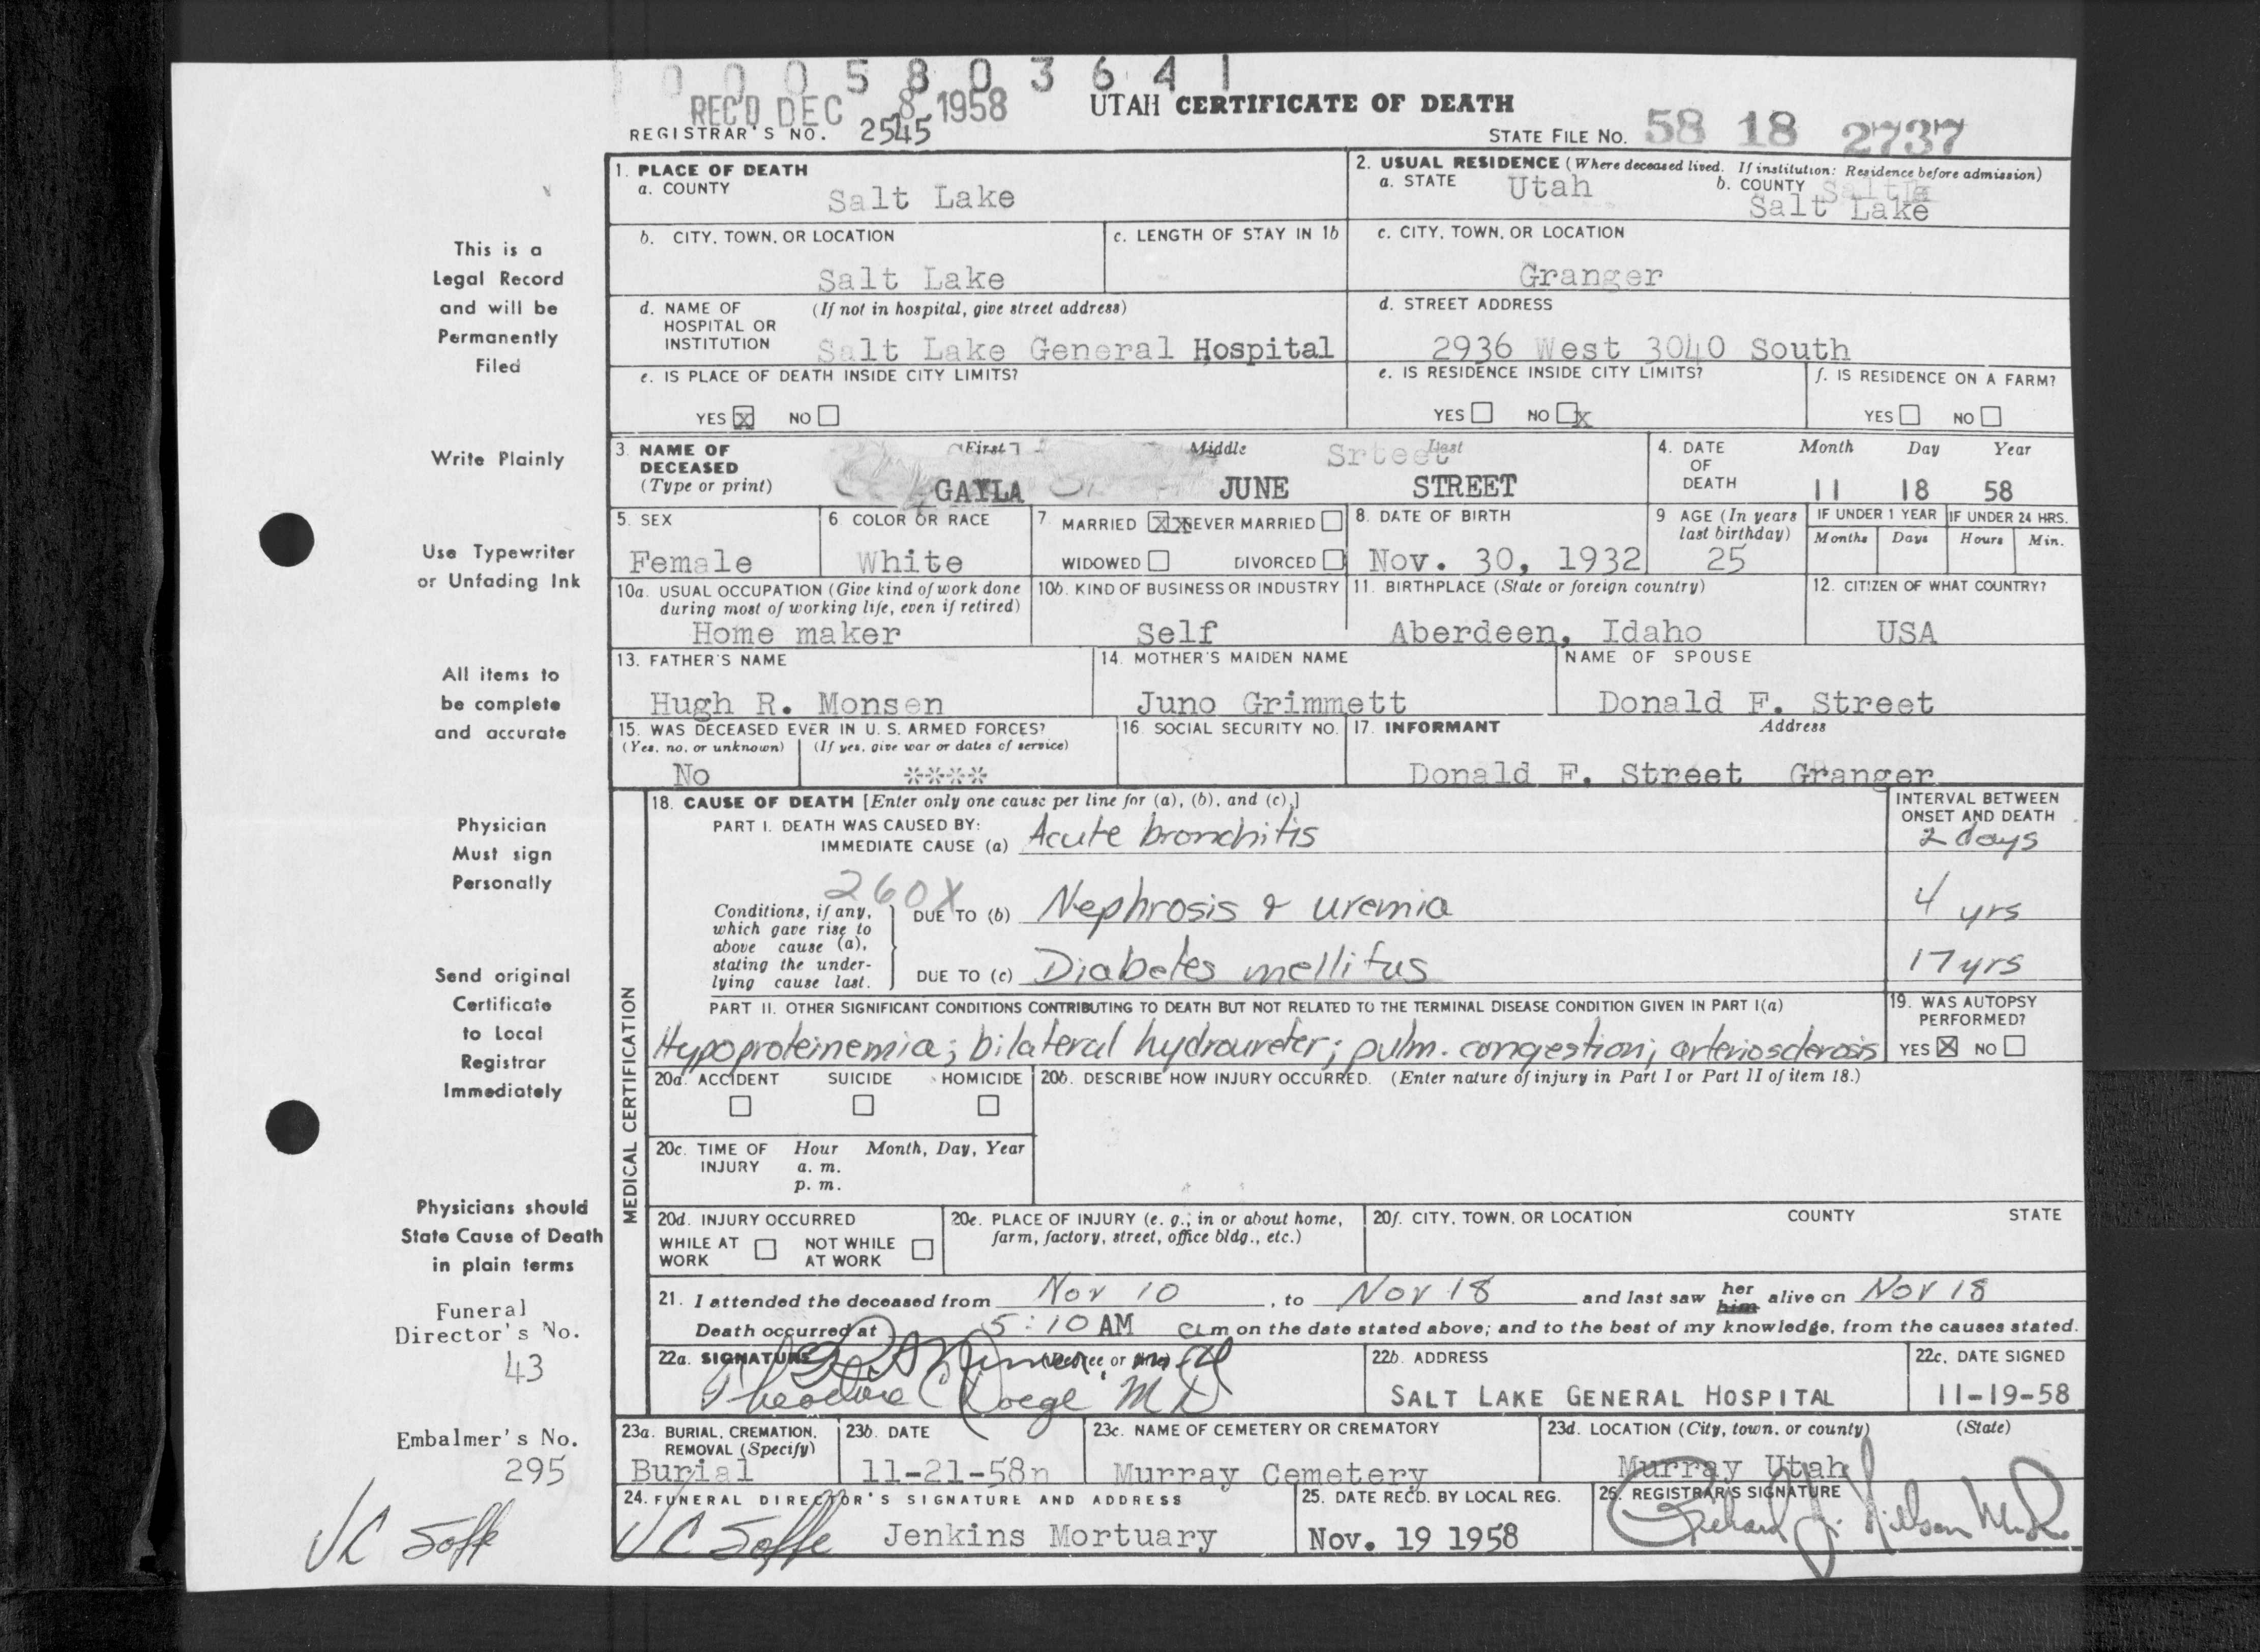 0 0 0 5 8 0 3 6 4 1
REC'D DEC 8 1958 UTAH CERTIFICATE OF DEATH
REGISTRAR'S NO. 2545 STATE FILE NO. 58 18 2737
1. PLACE OF DEATH
a. COUNTY Salt Lake
2. USUAL RESIDENCE (Where deceased lived. If institution: Residence before admission)
a. STATE Utah b. COUNTY Salt Lake
b. CITY, TOWN, OR LOCATION Salt Lake
c. LENGTH OF STAY IN 1b
c. CITY, TOWN, OR LOCATION Granger
d. NAME OF HOSPITAL OR INSTITUTION (If not in hospital, give street address) Salt Lake General Hospital
d. STREET ADDRESS 2936 West 3040 South
e. IS PLACE OF DEATH INSIDE CITY LIMITS?
YES X NO
e. IS RESIDENCE INSIDE CITY LIMITS?
YES NO X
f. IS RESIDENCE ON A FARM?
YES NO
3. NAME OF DECEASED (Type or print)
First Middle Last Srteet
GAYLA JUNE STREET
4. DATE OF DEATH Month Day Year
11 18 58
5. SEX Female
6. COLOR OR RACE White
7. MARRIED XX NEVER MARRIED
WIDOWED DIVORCED
8. DATE OF BIRTH Nov. 30, 1932
9 AGE (In years last birthday) 25
IF UNDER 1 YEAR Months Days
IF UNDER 24 HRS. Hours Min.
10a. USUAL OCCUPATION (Give kind of work done during most of working life, even if retired) Home maker
10b. KIND OF BUSINESS OR INDUSTRY Self
11. BIRTHPLACE (State or foreign country) Aberdeen, Idaho
12. CITIZEN OF WHAT COUNTRY? USA
13. FATHER'S NAME Hugh R. Monsen
14. MOTHER'S MAIDEN NAME Juno Grimmett
NAME OF SPOUSE Donald F. Street
15. WAS DECEASED EVER IN U. S. ARMED FORCES?
(Yes, no, or unknown) (If yes, give war or dates of service)
No ****
16. SOCIAL SECURITY NO.
17. INFORMANT Address
Donald F. Street Granger
MEDICAL CERTIFICATION
18. CAUSE OF DEATH [Enter only one cause per line for (a), (b), and (c).]
INTERVAL BETWEEN ONSET AND DEATH
PART I. DEATH WAS CAUSED BY:
IMMEDIATE CAUSE (a) Acute bronchitis 2 days
260X
Conditions, if any, which gave rise to above cause (a), stating the underlying cause last.
DUE TO (b) Nephrosis & uremia 4 yrs
DUE TO (c) Diabetes mellitus 17 yrs
PART II. OTHER SIGNIFICANT CONDITIONS CONTRIBUTING TO DEATH BUT NOT RELATED TO THE TERMINAL DISEASE CONDITION GIVEN IN PART I(a)
Hypoproteinemia; bilateral hydroureter; pulm. congestion; arteriosclerosis
19. WAS AUTOPSY PERFORMED?
YES X NO
20a. ACCIDENT SUICIDE HOMICIDE
20b. DESCRIBE HOW INJURY OCCURRED. (Enter nature of injury in Part I or Part II of item 18.)
20c. TIME OF INJURY Hour Month, Day, Year
a. m.
p. m.
20d. INJURY OCCURRED
WHILE AT WORK NOT WHILE AT WORK
20e. PLACE OF INJURY (e. g., in or about home, farm, factory, street, office bldg., etc.)
20f. CITY, TOWN, OR LOCATION COUNTY STATE
21. I attended the deceased from Nov 10, to Nov 18 and last saw her him alive on Nov 18
Death occurred at 5:10 AM a m on the date stated above; and to the best of my knowledge, from the causes stated.
22a. SIGNATURE (Degree or title)
Theodore C Doege MD
22b. ADDRESS
SALT LAKE GENERAL HOSPITAL
22c. DATE SIGNED
11-19-58
23a. BURIAL, CREMATION, REMOVAL (Specify) Burial
23b. DATE 11-21-58n
23c. NAME OF CEMETERY OR CREMATORY Murray Cemetery
23d. LOCATION (City, town, or county) (State)
Murray Utah
24. FUNERAL DIRECTOR'S SIGNATURE AND ADDRESS
VC Soffe Jenkins Mortuary
25. DATE REC'D. BY LOCAL REG.
Nov. 19 1958
26. REGISTRAR'S SIGNATURE
This is a
Legal Record
and will be
Permanently
Filed
Write Plainly
Use Typewriter
or Unfading Ink
All items to
be complete
and accurate
Physician
Must sign
Personally
Send original
Certificate
to Local
Registrar
Immediately
Physicians should
State Cause of Death
in plain terms
Funeral
Director's No.
43
Embalmer's No.
295
VC Soffe